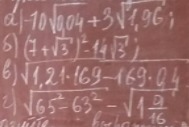 а) -10√0,04 + 3√1,96;
б) (7+√3)²-14√3;
в) √1,21·169-169·0,4
г) √65²-63² - √1 9/16